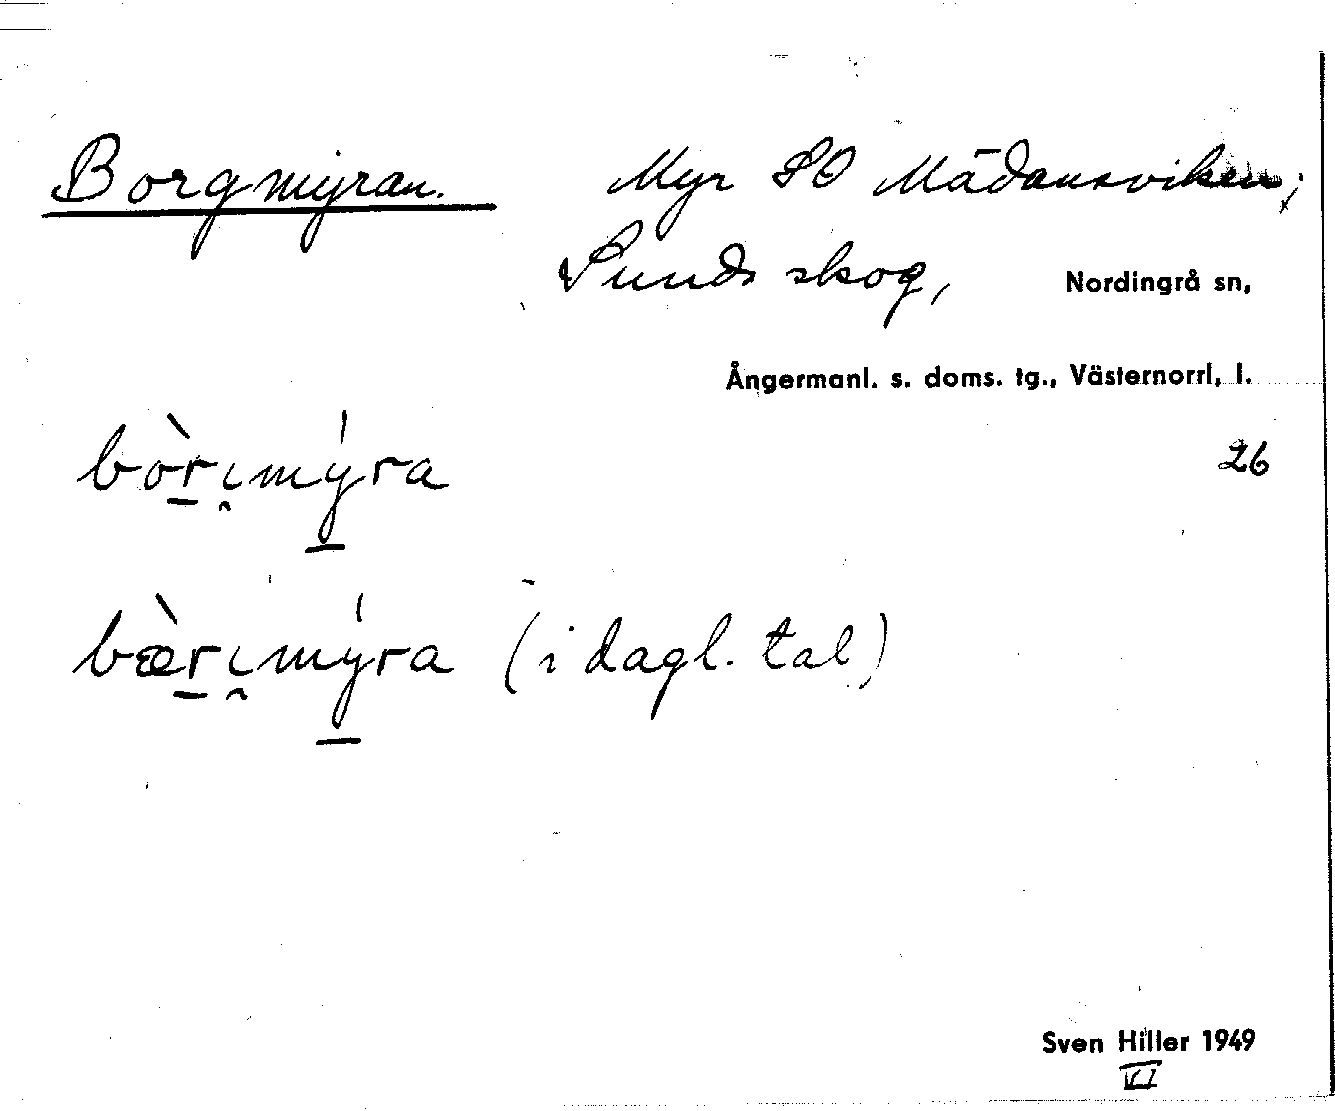 Borgmyran. Myr SO Mädansviken;
Sunds skog, Nordingrå sn,
Ångermanl. s. doms. tg., Västernorrl. l.
bòrι̯mýra 26
bærι̯mýra (i dagl. tal)
Sven Hiller 1949
VI